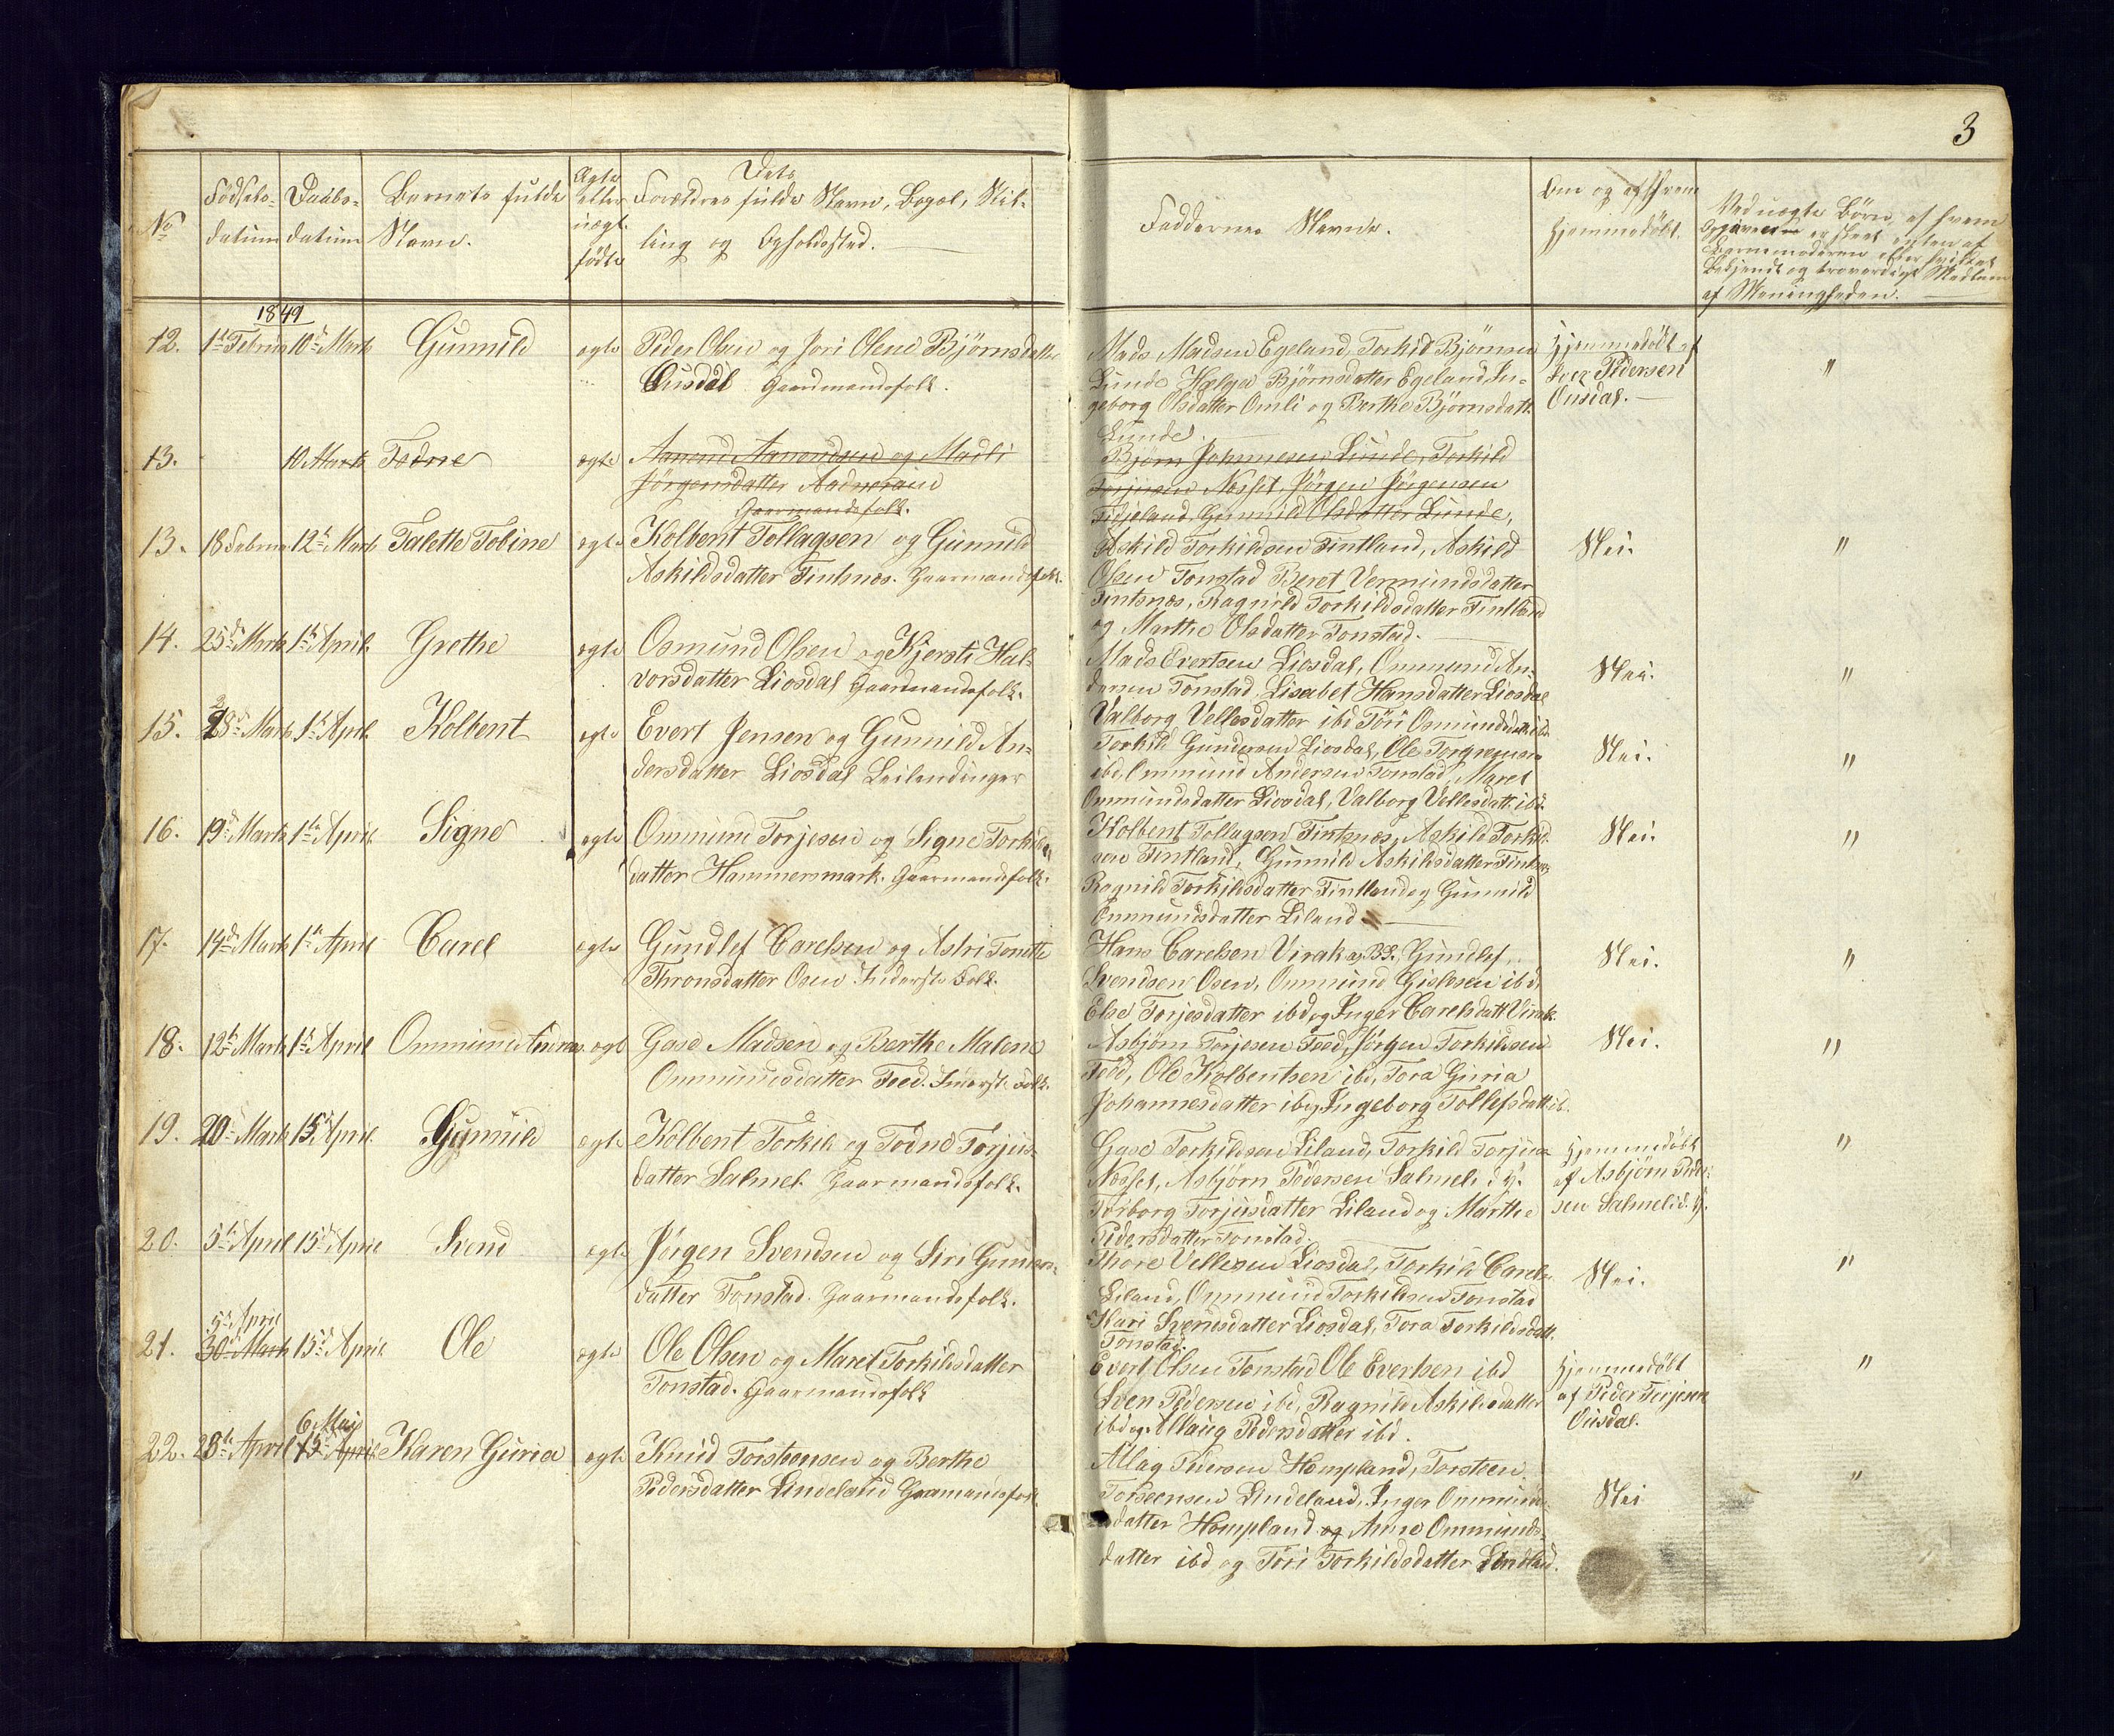 3
No
Fødsels-
datum
Daabs-
datum
Barnets fulde
Navn.
Ægte
eller
uægt.
fødte
Dets
Forældres fulde Navn, Bopæl, Stil-
ling og Opholdssted.
Faddernes Navne.
Om og af hvem
hjemmedøbt.
Ved uægte Børn, af hvem
Opgaven er skeet enten af
Barnemoderen eller hvilket
Bekjendt og troværdigt Medlem
af Menigheden.
1849
12. 1ste Februar 10de Marts Gunnild ægte Peder Olsen og Jori Olene Bjørnsdatter
Ousdal Gaardmandsfolk.
Mads Madsen Egeland, Torkild Bjørnsen
Lunde Helga Bjørnsdatter Egeland In-
geborg Olsdatter Omli og Berthe Bjørnsdatt.
Lunde.
Hjemmedøbt af
Pedersen
Ousdal.
"
13. 10 Marts Todne ægte Aanend Aanendsen og Madli
Jørgensdatter
Gaarmandsfolk.
Bjørn Johannesen Lunde, Torkild
Torjusen Nesset, Jørgen Jørgensen
Fidjeland, Gunnild Olsdatter Lunde,
13. 18 Februar 12te Marts Talette Tobine ægte Kolbent Tollagsen og Gunnild
Askildsdatter Fintsnæs. Gaarmandsfolk.
Askild Torkildsen Fintland, Askild
Olsen Tonstad Beret Vermundsdatter
Fintsnæs, Ragnild Torkildsdatter Fintland
og Marthe Olsdatter Tonstad.
Nei.
"
14. 25de Marts 1ste April Grethe ægte Osmund Olsen og Kjersti Hal-
vorsdatter Liosdal Gaardmandsfolk.
Mads Evertsen Liosdal, Ommund An-
dersen Tonstad Lisabet Hansdatter Liosdal
Valborg Vellesdatter ibd Tori Osmundsdatt ibd
Nei.
"
15. 28de Marts 1ste April Kolbent ægte Evert Jensen og Gunnild An-
dersdatter Liosdal Leilendinger
Torkild Gundersen Liosdal, Ole Torgrimsen
ibd, Ommund Andersen Tonstad, Maret
Ommundsdatter Liosdal, Valborg Vellesdatt. ibd.
Nei.
"
16. 19de Marts 1ste April Signe ægte Ommund Torjesen og Signe Torkilds
datter Hammersmark. Gaarmandsfolk.
Kolbent Tollagsen Fintsnæs, Askild Torkild-
sen Fintland, Gunnild Askildsdatter Fintsnæs
Ragnild Torkildsdatter Fintland og Gunnild
Ommundsdatter Liland.
Nei.
"
17. 14de Marts 1ste April Carel ægte Gundlef Carelsen og Astri Tonette
Thronsdatter Osen Inderste Folk.
Hans Carelsen Virak Gundlef
Svendsen Osen, Ommund Gislesen ibd,
Else Torjesdatter ibd og Inger Carelsdatt Virak.
Nei.
"
18. 12te Marts 1ste April Ommund Andreas ægt Gase Madsen og Berthe Malene
Ommundsdatter Foed. Inderst Folk.
Asbjørn Torjesen Foed, Jørgen Torkildsen
Foed, Ole Kolbentsen ibd, Tora Guria
Johannesdatter ibd, Ingeborg Tollefsdatt ibd.
Nei.
"
19. 20de Marts 15de April Gunnild ægte Kolbent Torkild og Todne Torjus-
datter Salmel. Gaarmandsfolk.
Gase Torkildsen Liland, Torkild Torjusen
Nesset, Asbjørn Pedersen Salmeli d. y.
Torborg Torjusdatter Liland og Marthe
Pedersdatter Tonstad.
Hjemmedøbt
af Asbjørn Peder-
sen Salmeli d. y.
"
20. 5te April 15de April Svend ægte Jørgen Svendsen og Siri Gunders-
datter Tonstad. Gaarmandsfolk.
Thore Vellesen Liosdal, Torkild Carels.
Liland, Ommund Torkildsen Tonstad
Kari Svendsdatter Liosdal, Tora Torkildsdatt.
Tonstad.
Nei.
"
5te April
21. 30de Marts 15de April Ole ægte Ole Olsen og Maret Torkildsdatter
Tonstad. Gaarmandsfolk
Evert Olsen Tonstad Ole Evertsen ibd
Sven Pedersen ibd, Ragnild Askildsdatter
ibd og Allaug Pedersdatter ibd.
Hjemmedøbt
af Peder Torjesen
Ousdal.
"
6 Mai
22. 28de April 15de April Karen Guria ægte Knud Torsteensen og Berthe
Pedersdatter Lindeland Gaarmandsfolk.
Atlag Pedersen Hompland, Torsteen
Torsteensen Lindeland, Inger Ommunds-
datter Hompland og Anne Ommunds-
datter ibd og Tori Torkildsdatter Lindland.
Nei
"